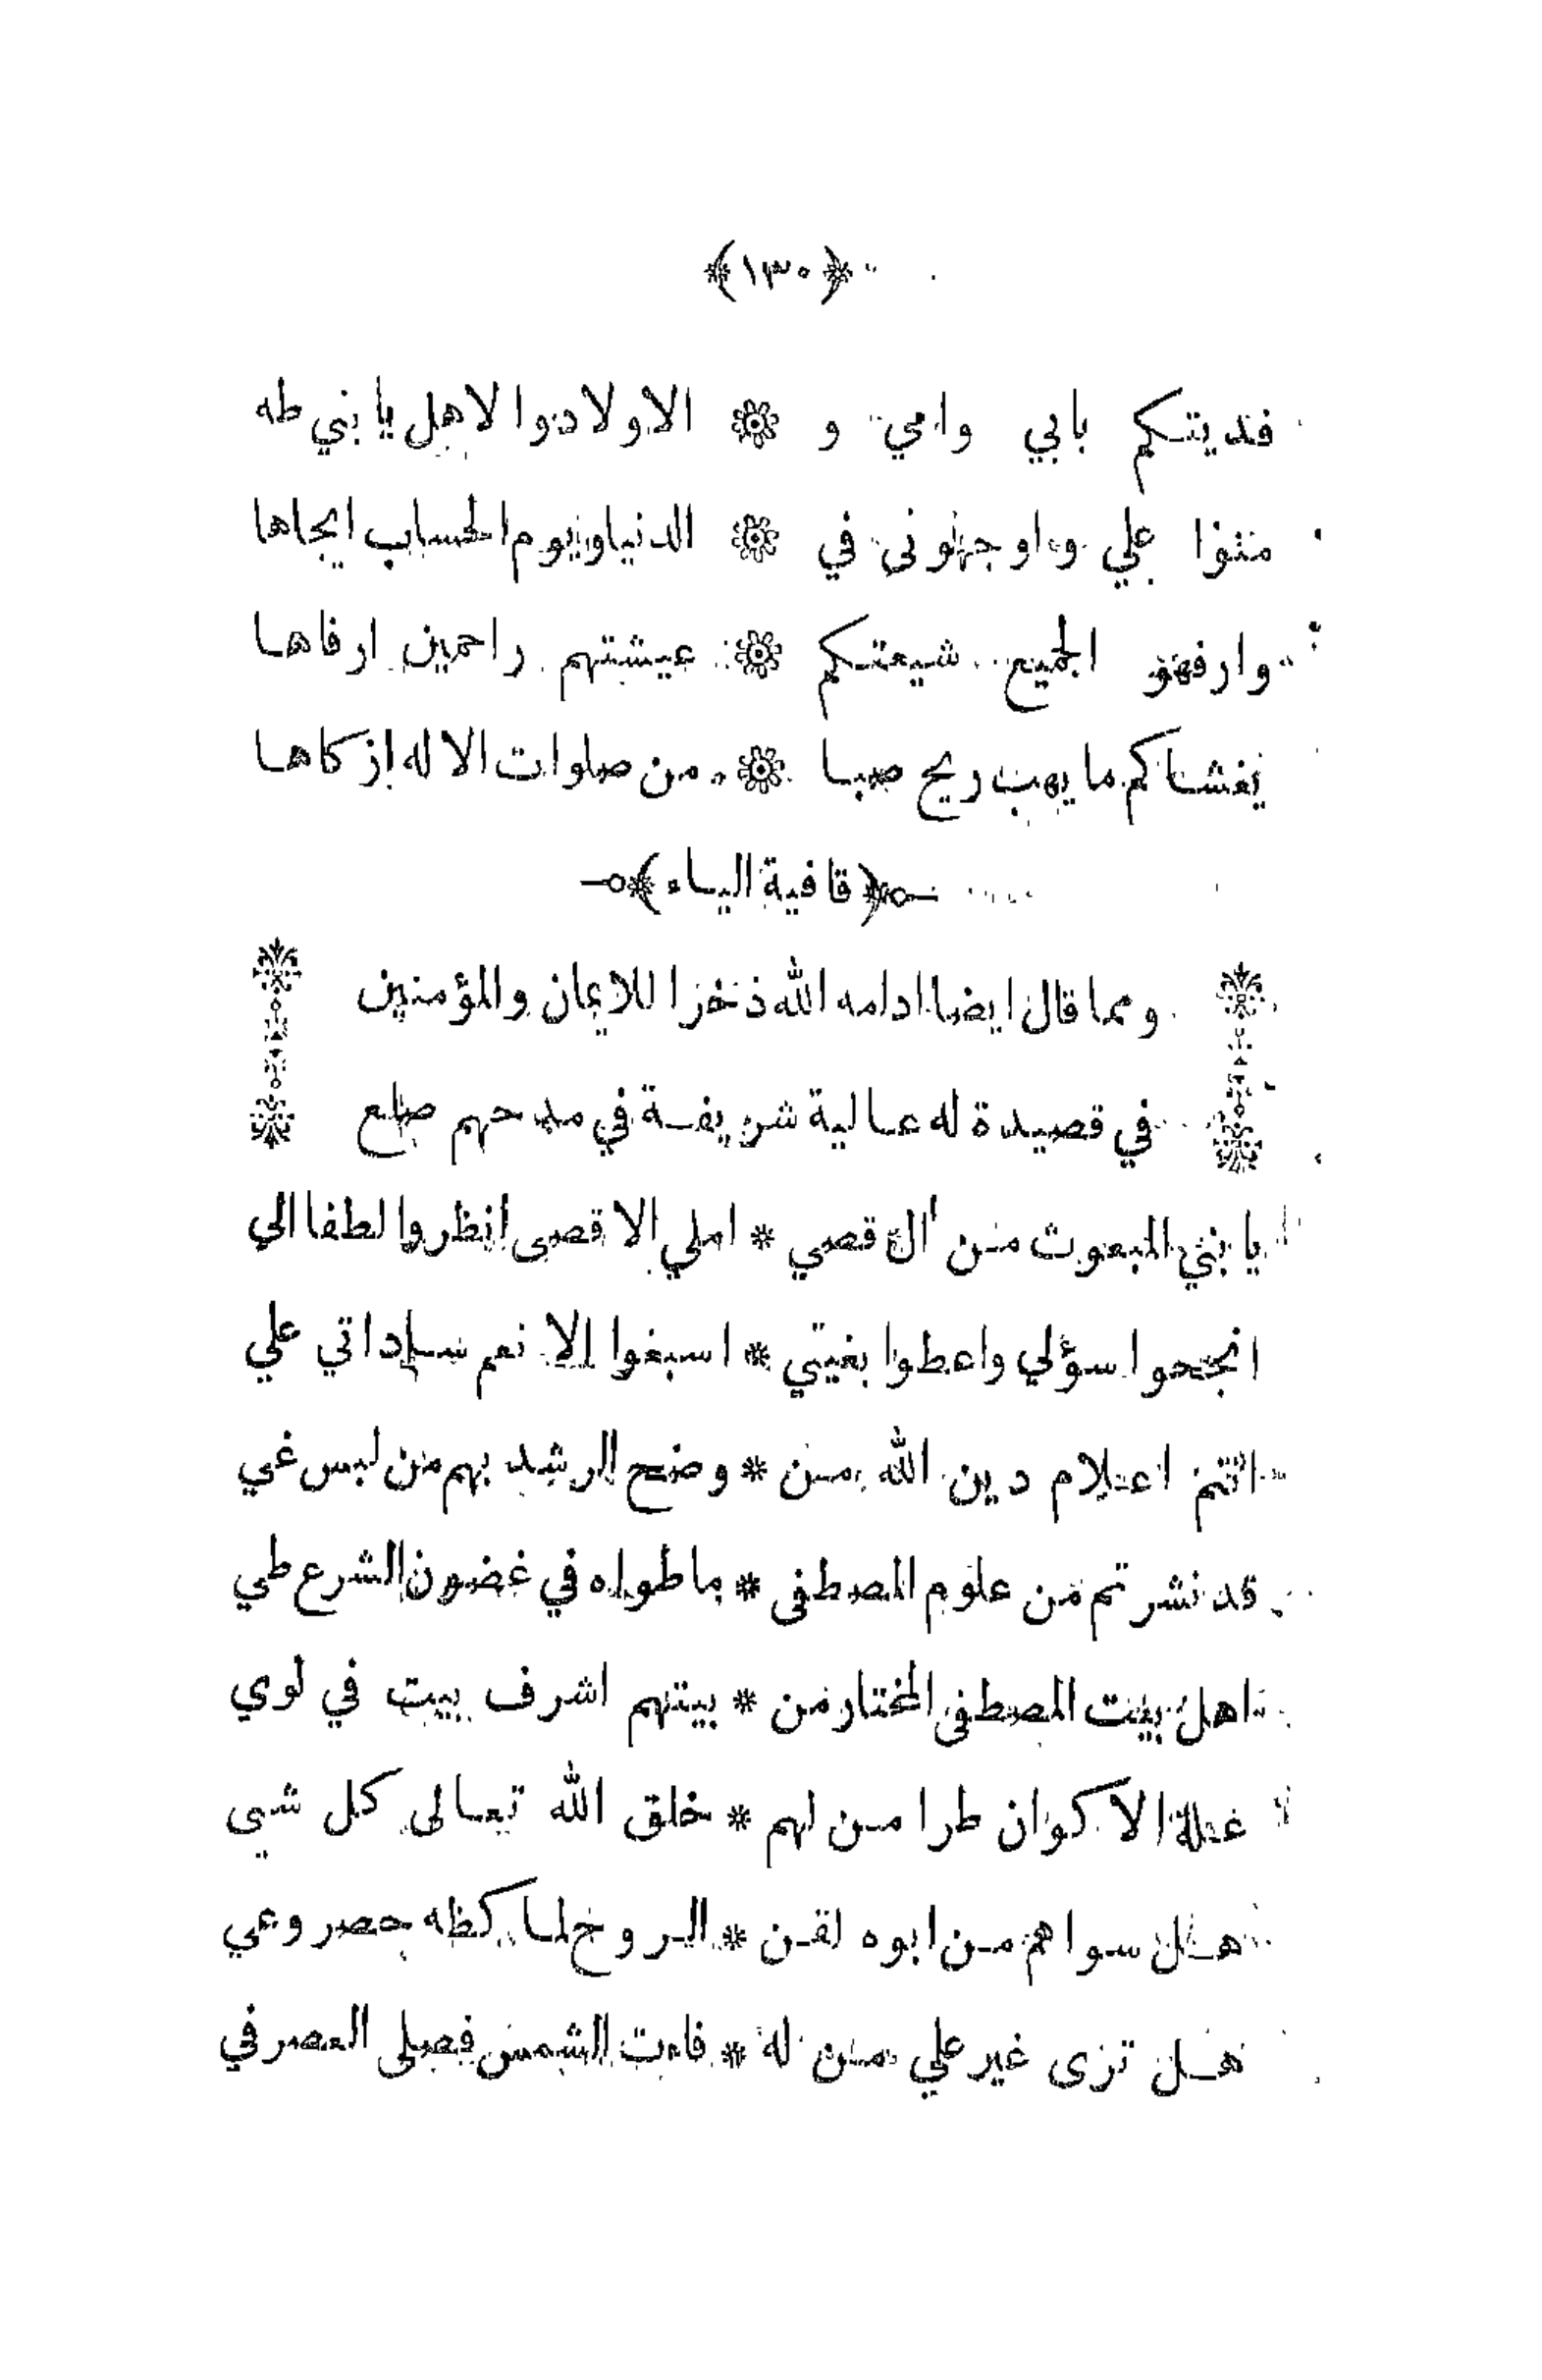 ﴿١٣٠﴾
فديتكم بابي وامي و * الاولاد والاهل يا بني طه
منوا علي واوجهوني في * الدنيا ويوم الحساب ايجاها
وارفهو الجميع شيعتكم * عيشتهم راحمين ارفاها
يغشاكم ما يهب ريح صبا * من صلوات الاله ازكاها
﴿قافية الياء﴾
ومما قال ايضا ادامه الله ذخرا للايمان والمؤمنين
في قصيدة له عالية شريفة في مدحهم صلع
يا بني المبعوث من ال قصي * املي الاقصى انظروا لطفا الي
انجحوا سؤلي واعطوا بغيتي * اسبغوا الا نعم ساداتي علي
انتم اعلام دين الله من * وضح الرشد بهم من لبس غي
قد نشرتم من علوم المصطفى * ما طواه في غضون الشرع طي
اهل بيت المصطفى المختار من * بيتهم اشرف بيت في لوي
علة الاكوان طرا من لهم * خلق الله تعالى كل شيى
هل سواهم من ابوه لقن * الروح لما كظه حصر وعي
هل ترى غير علي من له * فاءت الشمس فصلى العصر في